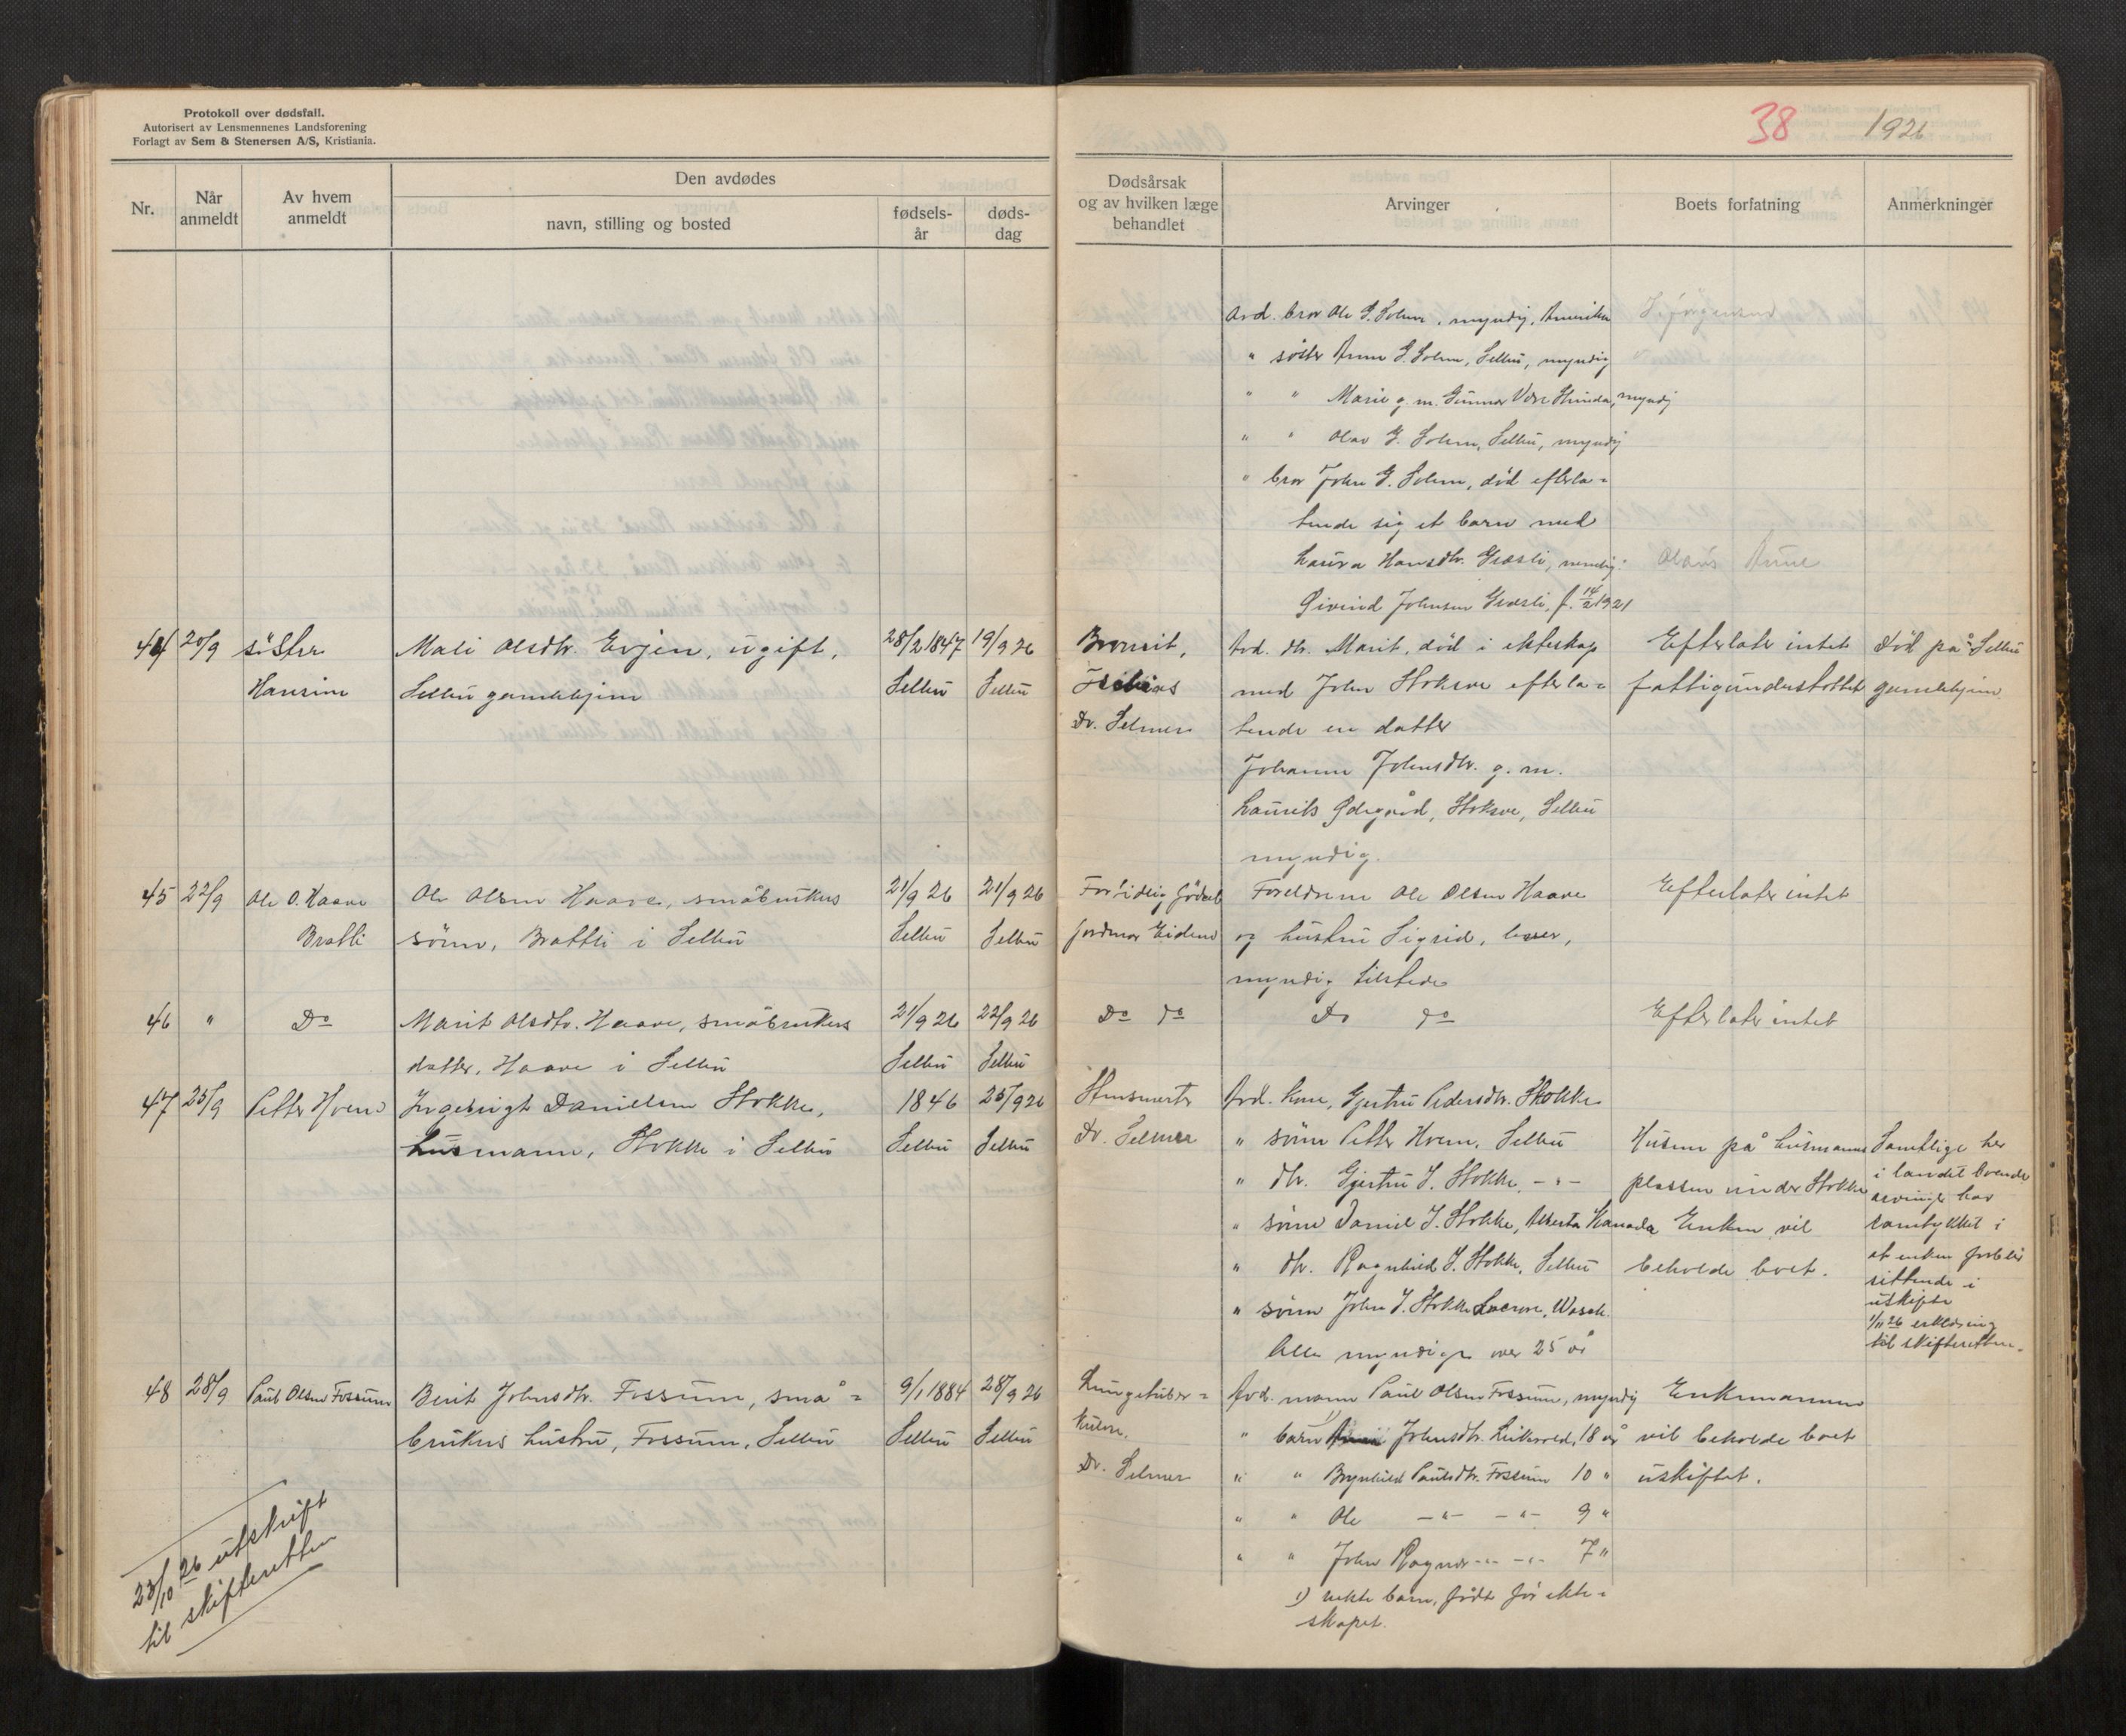 Protokoll over dødsfall.
Autorisert av Lensmennenes Landsforening
Forlagt av Sem & Stenersen A/S, Kristiania.
38 1926
Nr.
Når anmeldt
Av hvem anmeldt
Den avdødes
navn, stilling og bosted
fødsels-år
døds-dag
Dødsårsak
og av hvilken læge
behandlet
Arvinger
Boets forfatning
Anmerkninger
Avd. bror Ole G. Solem, myndig, Amerika
" søster Anne G. Solem, Selbu, myndig
" " Marie g. m. Gunnar Hinda, myndig
" " Olav G. Solem, Selbu, myndig
" bror John G. Solem, død efterla=
tende sig et barn med
Laura Hansdtr. Græsli, nemlig:
Eivind Johnsen Græsli, f. 1921
44 20/9 søster Mali Olsdtr. Evjen, ugift, 28/2 1847 19/9 26 Avd. dtr. Marit, død i ekteskap Efterlater intet Død på Selbu
Hansine Selbu gamlehjem Selbu Selbu med John Stokke efterla= fattigunderstøttet gamlehjem
Dr. Selmer tende en datter
Johanne Johnsdtr. g. m.
Laurits Ødegård, Selbu
myndig.
45 22/9 Ole O. Haave Ole Olsen Haave, småbrukers 21/9 26 21/9 26 Fortidlig fødsel Foreldrene Ole Olsen Haave Efterlater intet
Bratli sønn, Brattli i Selbu Selbu Selbu jordmor Eidem og hustru Sigrid, lever,
myndig tilstede
46 " Do Marit Olsdtr. Haave, småbrukers 21/9 26 22/9 26 Do do Do do Efterlater intet
datter, Haave i Selbu Selbu Selbu
47 25/9 Petter Hvem Ingebrigt Danielsen Stokke, 1846 25/9 26 Avd. kone, Gjertru Pedersdtr. Stokke
husmann, Stokke i Selbu Selbu Selbu Dr. Selmer " sønn Petter Hvem, Selbu Husene på husmanns Samtlige her
" dtr. Gjertru I. Stokke, -"- plassen under Stokke i landet boende
arvinger har
" sønn Daniel I. Stokke, Alberta Kanada Enken vil samtykket i
" dtr. Ragnhild I. Stokke, Selbu beholde boet. at enken forblir
sittende i
" sønn John I. Stokke, Wasch. uskifte
1/11 26 erklæring
Alle myndige over 25 år til skifteretten.
48 28/9 Paul Olsen Fossum Berit Johnsdtr. Fossum, små= 9/1 1884 28/9 26 Lungetuber= Avd. mann Paul Olsen Fossum, myndig Enkemannen
brukers hustru, Fossum, Selbu Selbu Selbu kulose. " barn 1) Johnsdtr. 18 år vil beholde boet
Dr. Selmer " " Brynhild Paulsdtr. Fossum 10 " uskiftet.
" " Ole -"- -"- 9 "
" " John Ragnar -"- -"- 7 "
1) uekte barn, født før ekte=
skapet.
23/10 26 utskrift
til skifteretten